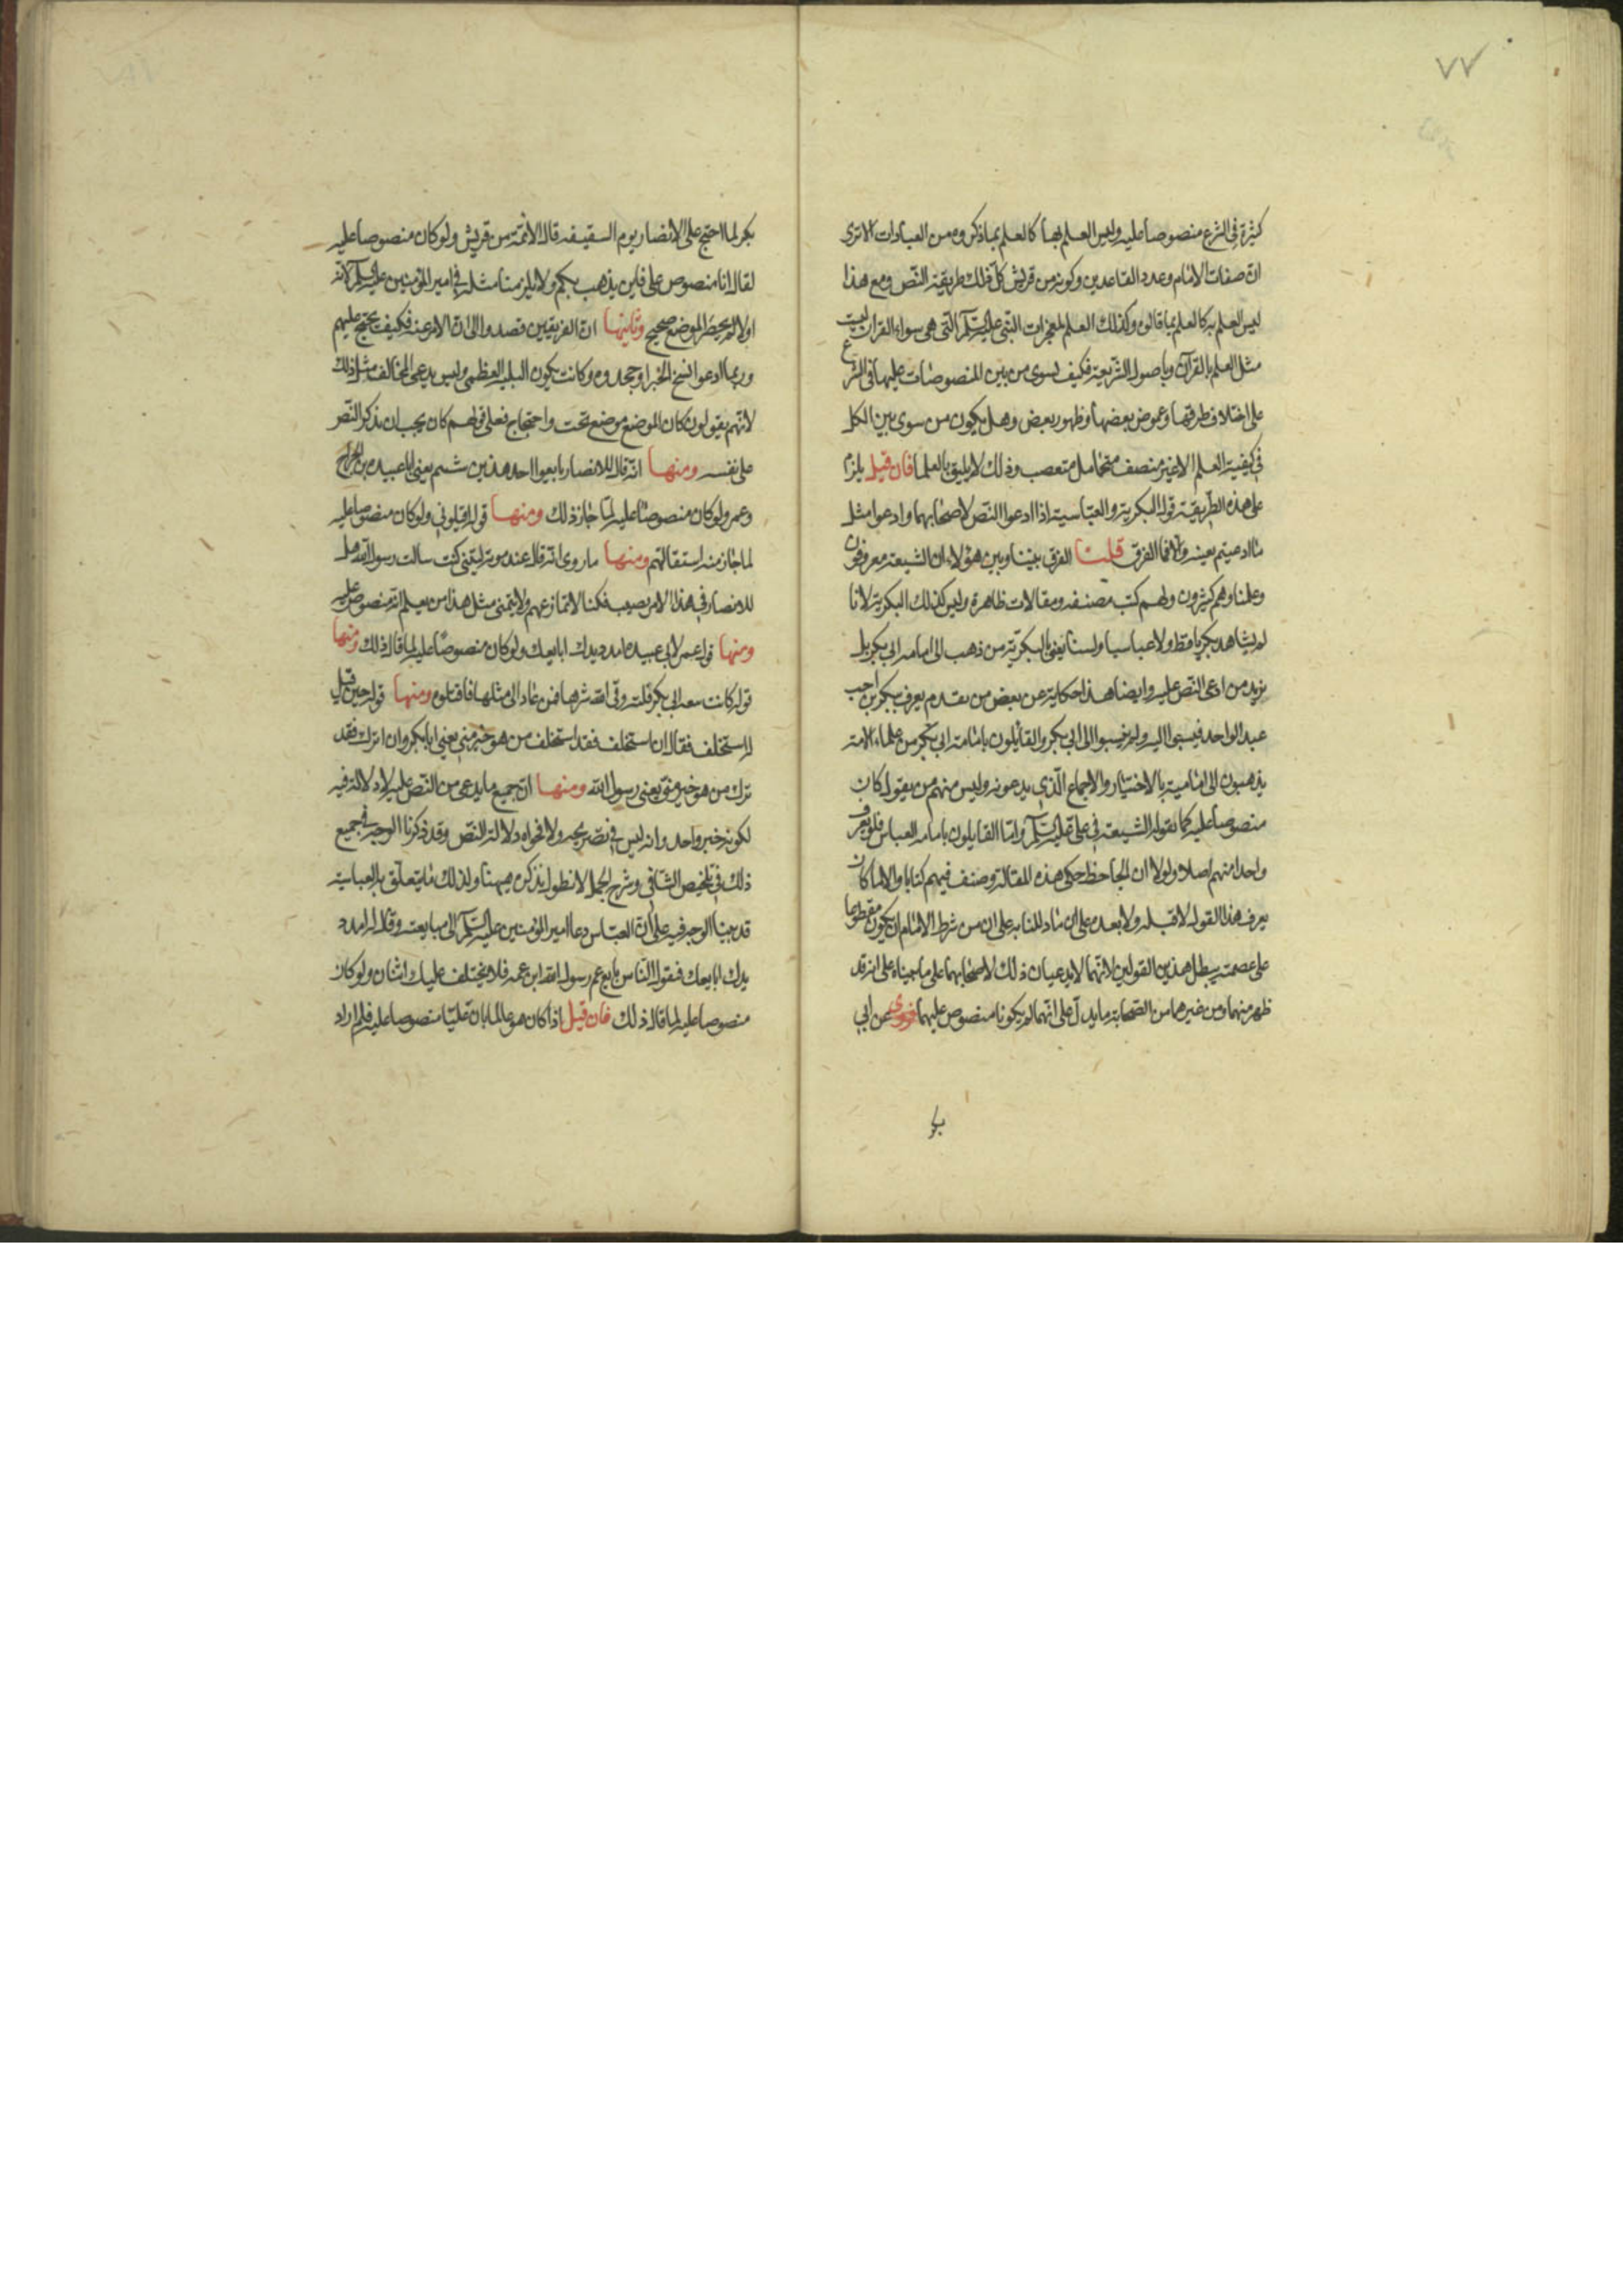 ٧٧
كثيرة في الشرع منصوصا عليه وليس العلم بها كالعلم بما ذكروه من العبادات الا ترى
ان صفات الامام وعدد العاقدين وكونه من قريش كل ذلك طريقه النص ومع هذا
ليس العلم به كالعلم بما قالوه وكذلك العلم لمعجزات النبي عليه السلم التي هي سواء القران ليست
مثل العلم بالقرآن وباصول الشريعة فكيف يسوى من بين المنصوصات عليها في الشرع
على اختلاف طرقها وغموض بعضها وظهور بعض وهل يكون من سوى بين الكل
في كيفية العلم الا غير منصف متحامل متعصب وذلك لا يليق بالعلما فان قيل يلزم
على هذه الطريقة قول البكرية والعباسية اذا ادعوا النص لاصحابهما وادعوا مثل
ما ادعيتم بعينه والا فما الفرق قلنا الفرق بيننا وبين هؤلاء ان الشيعة معروفون
وعلماوهم كثيرون ولهم كتب مصنفه ومقالات ظاهرة وليس كذلك البكرية لانا
لم نشاهد بكريا قط ولا عباسيا ولسنا نعني بالبكرية من ذهب الى امامه ابي بكر بل
نريد من ادعى النص عليه وايضا هذا حكاية عن بعض من تقدم يعرف ببكر بن اخت
عبد الواحد فنسبوا اليه ولم ينسبوا الى ابي بكر والقائلون بامامة ابي بكر من علماء الامة
يذهبون الى امامته بالاختيار والاجماع الذي يدعونه وليس منهم من يقول كان
منصوصا عليه كما تقوله الشيعة في علي عليه السلم واما القايلون بامامه العباس فلم يعرف
واحدا منهم اصلا ولولا ان الجاحظ حكى هذه المقالة وصنف فيهم كتابا والا لما كان
يعرف هذا القول لا قبله ولا بعده على ان ما دللنا به على ان من شرط الامام ان يكون مقطوعا
على عصمته يبطل هذين القولين لانهما لا يدعيان ذلك لاصحابهما على ما بيناه على انه قد
ظهر منهما ومن غيرهما من الصحابة ما يدل على انهما لم يكونا منصوص عليهما فروى عن ابي
بكر
بكر لما احتج على الانصار يوم السقيفه قال الائمة من قريش ولو كان منصوصا عليه
لقال انا منصوص على فاين يذهب بكم ولا يلزمنا مثله في امير المؤمنين عليه السلم لانه
اولا لم يحضر الموضع صحيح وثانيها ان الفريقين قصدوا الى ان الامر عنه فكيف يحتج عليهم
وربما ادعوا نسخ الخبر او جحدوه وكانت يكون البليه العظمى وليس يدعى المخالف مثل ذلك
لانهم يقولون كان الموضع موضع بحث واحتجاج فعلى قولهم كان يجب ان يذكر النص
على نفسه ومنها انه قال للانصار بايعوا احد هذين شئتم يعني ابا عبيده بن الجراح
وعمر ولو كان منصوصا عليه لما جاز ذلك ومنها قوله اقيلوني ولو كان منصوصا عليه
لما جاز منه استقالتهم ومنها ما روى انه قال عند موته ليتني كنت سالت رسول الله هل
للانصار في هذا الامر نصيب فكنا لا ننازعهم ولا يتمنى مثل هذا من يعلم انه منصوص عليه
ومنها قول عمر لابي عبيده امدد يدك ابايعك ولو كان منصوصا عليه لما قال ذلك ومنها
قوله كانت بيعه ابي بكر فلته وقى الله شرها فمن عاد الى مثلها فاقتلوه ومنها قوله حين قيل
له استخلف فقال ان استخلف فقد استخلف من هو خير مني يعني ابا بكر وان اترك فقد
ترك من هو خير مني يعنى رسول الله ومنها ان جميع ما يدعى من النص عليه لا دلالة فيه
لكونه خبر واحد وانه ليس في نصريحه ولا فحواه دلالة النص وقد ذكرنا الوجه في جميع
ذلك في تلخيص الشافي وشرح الجمل لا نطول بذكره هيهنا ولذلك ما يتعلق به العباسية
قد بينا الوجه فيه على ان العباس دعا امير المؤمنين عليه السلم الى مبايعته وقال له امدد
يدك ابايعك فيقول الناس بايع عم رسول الله ابن عمه فلا يختلف عليك اثنان ولو كان
منصوصا عليه لما قال ذلك فان قيل اذا كان هو عالما بان عليا منصوصا عليه فلم اراد